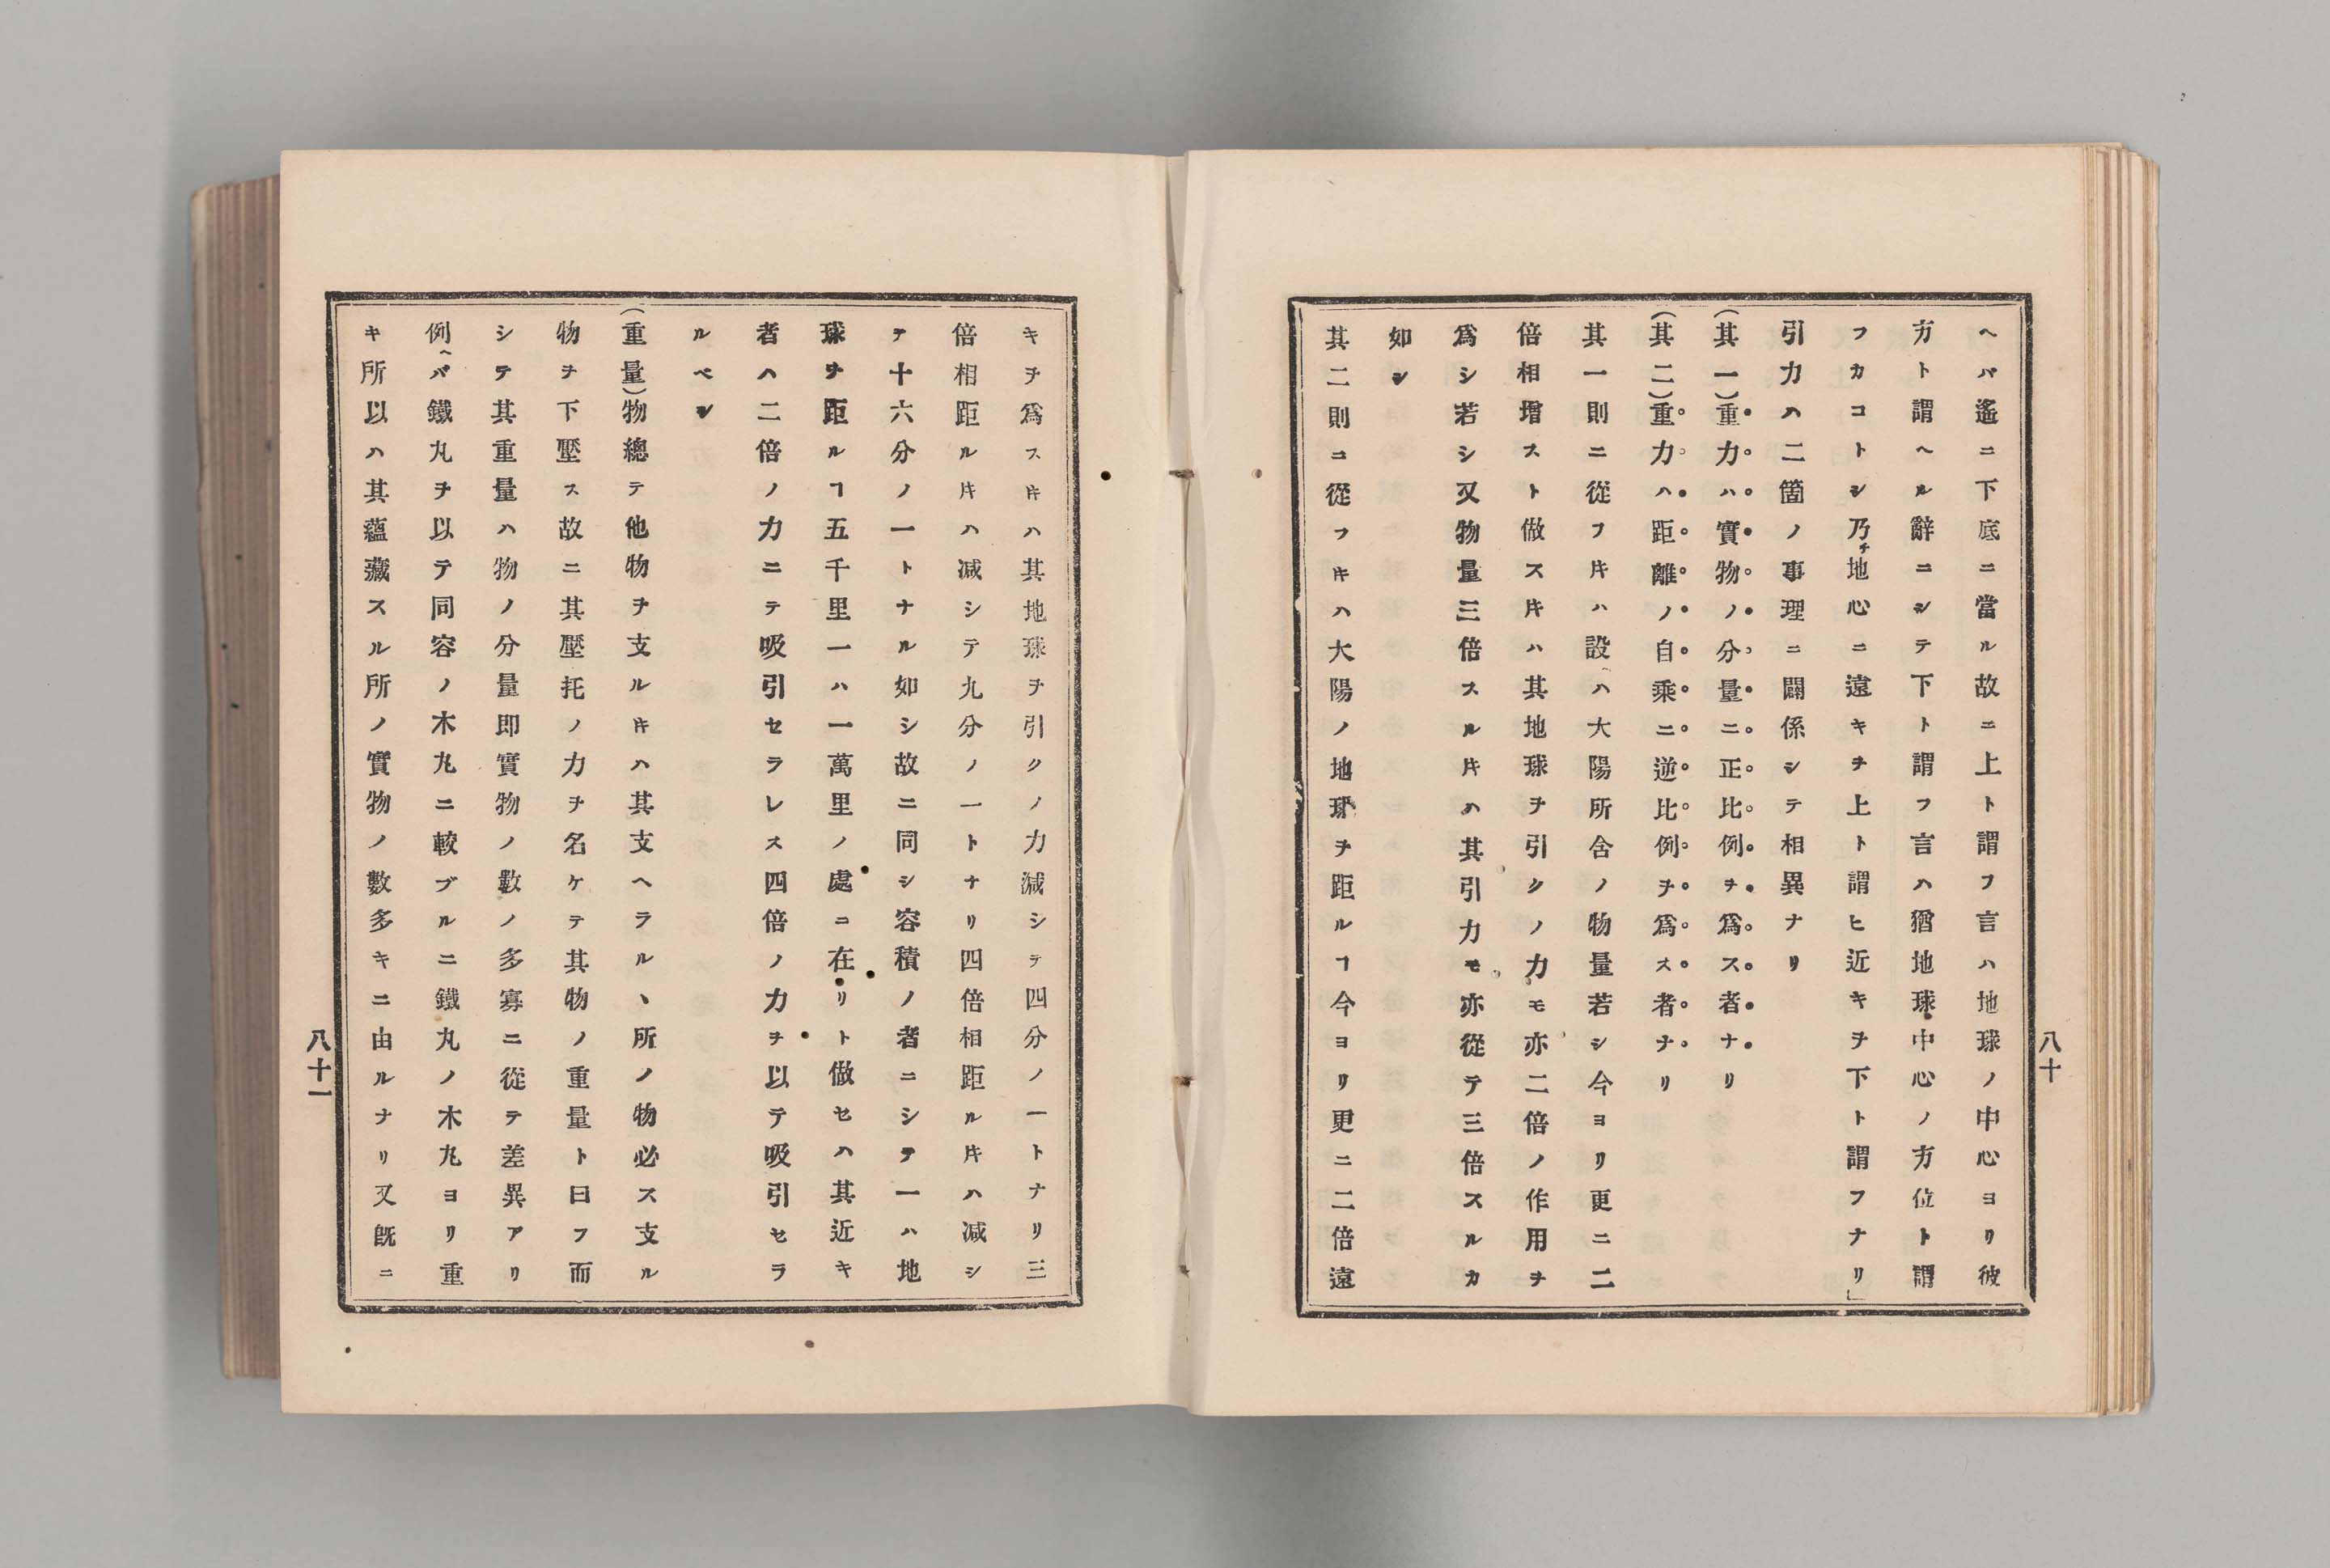 ヘバ遙ニ下底ニ當ル故ニ上ト謂フ言ハ地球ノ中心ヨリ彼
方ト謂ヘル辭ニシテ下ト謂フ言ハ猶地球中心ノ方位ト謂
フカコトシ乃チ地心ニ遠キヲ上ト謂ヒ近キヲ下ト謂フナリ」
引力ハ二箇ノ事理ニ關係シテ相異ナリ
(其一)重力ハ實物ノ分量ニ正比例ヲ爲ス者ナリ
(其二)重力ハ距離ノ自乘ニ逆比例ヲ爲ス者ナリ
其一則ニ從フ𪜈ハ設ヘハ大陽所含ノ物量若シ今ヨリ更ニ二
倍相增スト倣ス𪜈ハ其地球ヲ引クノ力モ亦二倍ノ作用ヲ
爲シ若シ又物量三倍スル𪜈ハ其引力モ亦從テ三倍スルカ
如シ
其二則ニ從フ𪜈ハ大陽ノ地球ヲ距ルヿ今ヨリ更ニ二倍遠
八十
キヲ爲ス𪜈ハ其地球ヲ引クノ力減シテ四分ノ一トナリ三
倍相距ル𪜈ハ減シテ九分ノ一トナリ四倍相距ル𪜈ハ減シ
テ十六分ノ一トナル如シ故ニ同シ容積ノ者ニシテ一ハ地
球ヲ距ルヿ五千里一ハ一萬里ノ處ニ在リト倣セハ其近キ
者ハ二倍ノ力ニテ吸引セラレス四倍ノ力ヲ以テ吸引セラ
ルベシ
(重量)物總テ他物ヲ支ル𪜈ハ其支ヘラルヽ所ノ物必ス支ル
物ヲ下壓ス故ニ其壓托ノ力ヲ名ケテ其物ノ重量ト曰フ而
シテ其重量ハ物ノ分量即實物ノ數ノ多寡ニ從テ差異アリ
例ヘバ鐵丸ヲ以テ同容ノ木丸ニ較ブルニ鐵丸ノ木丸ヨリ重
キ所以ハ其蘊藏スル所ノ實物ノ數多キニ由ルナリ又既ニ
八十一